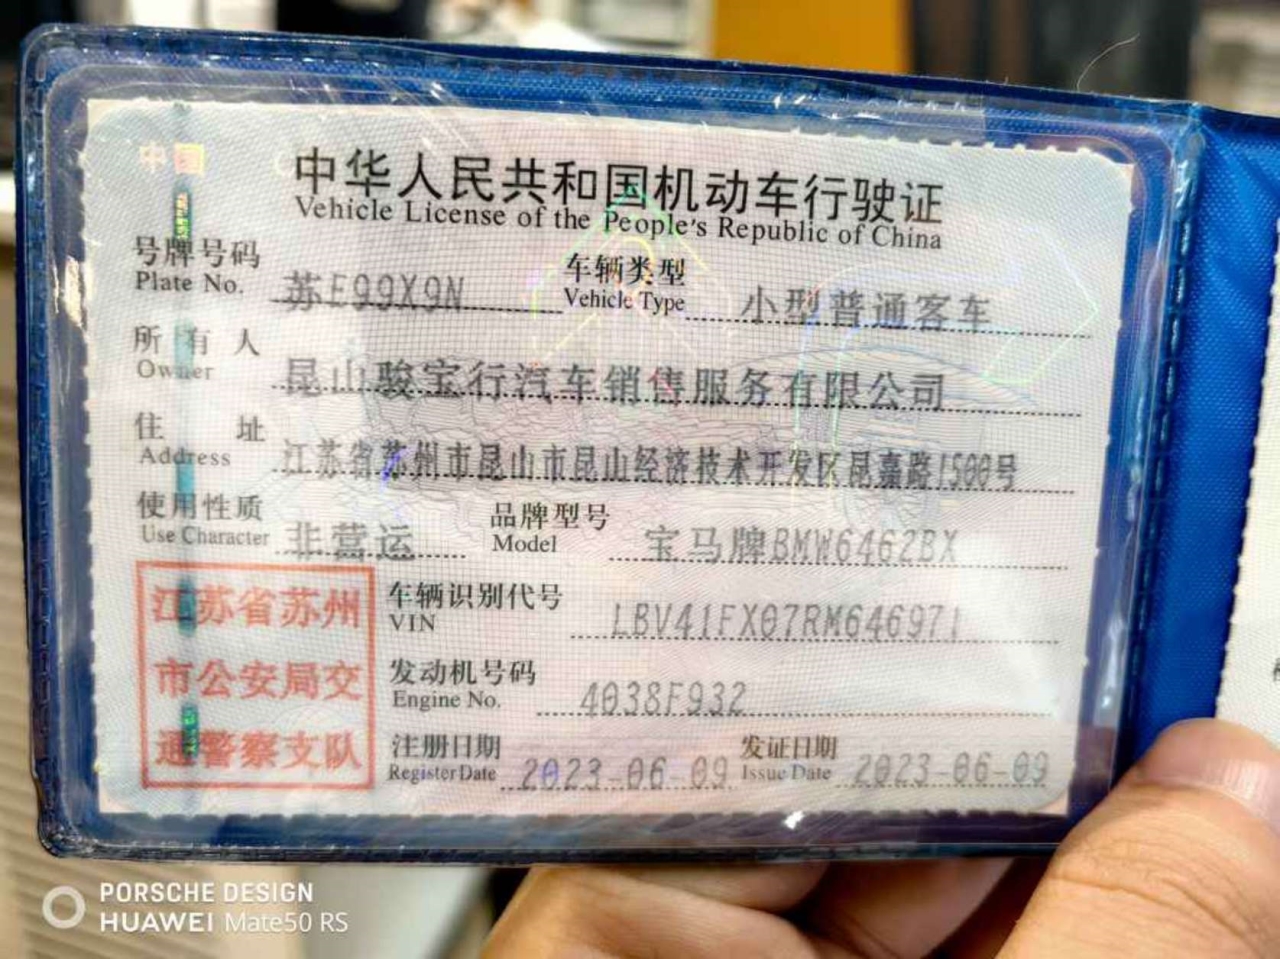 中国
中华人民共和国机动车行驶证
Vehicle License of the People's Republic of China
号牌号码 苏E99X9N 车辆类型 小型普通客车
Plate No. Vehicle Type
所有人 昆山骏宝行汽车销售服务有限公司
Owner
住址 江苏省苏州市昆山市昆山经济技术开发区昆嘉路1500号
Address
使用性质 非营运 品牌型号 宝马牌BMW6462BX
Use Character Model
江苏省苏州
市公安局交
通警察支队
车辆识别代号 LBV41FX07RM646971
VIN
发动机号码 4038F932
Engine No.
注册日期 2023-06-09 发证日期 2023-06-09
Register Date Issue Date
PORSCHE DESIGN
HUAWEI Mate50 RS